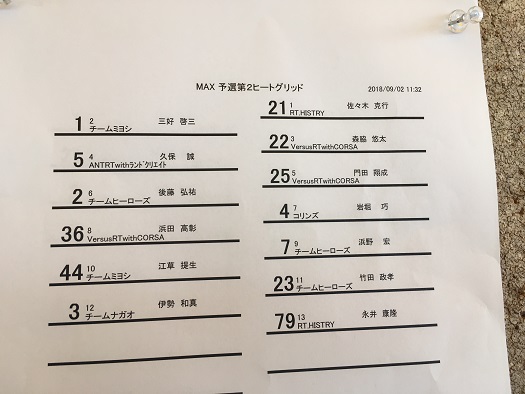 MAX 予選第2ヒートグリッド 2018/09/02 11:32
21 1 佐々木 克行
RT.HISTRY
1 2 三好 啓三
チームミヨシ
22 3 森脇 悠太
VersusRTwithCORSA
5 4 久保 誠
ANTRTwithランドクリエイト
25 5 門田 翔成
VersusRTwithCORSA
2 6 後藤 弘祐
チームヒーローズ
4 7 岩堀 巧
コリンズ
36 8 浜田 高彰
VersusRTwithCORSA
7 9 浜野 宏
チームヒーローズ
44 10 江草 提生
チームミヨシ
23 11 竹田 政孝
チームヒーローズ
3 12 伊勢 和真
チームナガオ
79 13 永井 康隆
RT.HISTRY